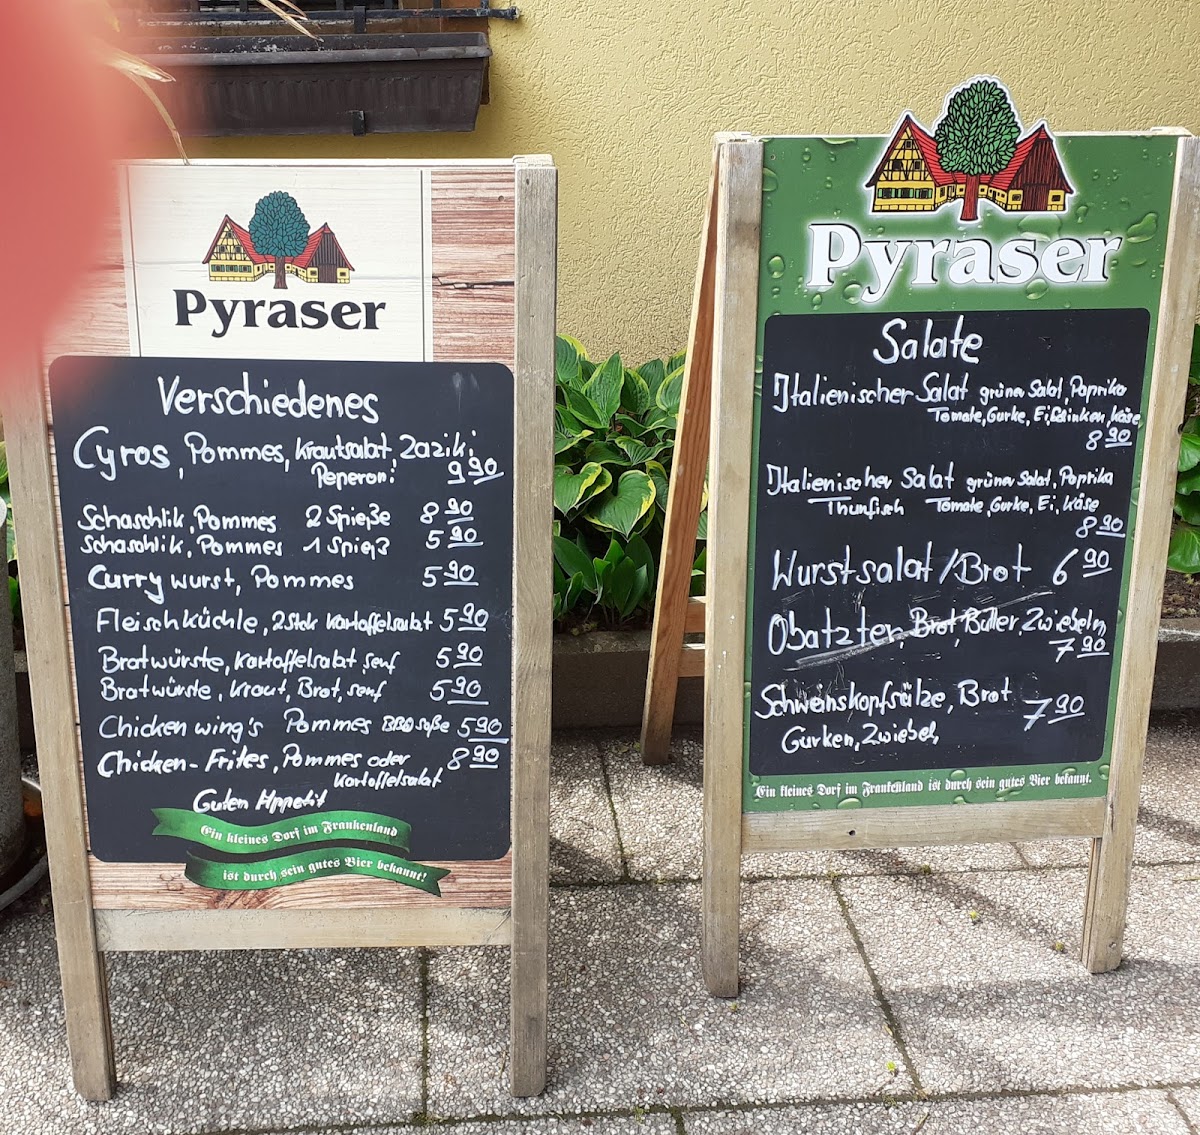 Pyraser
Verschiedenes
Gyros, Pommes, Krautsalat, Zaziki
Peperoni 9 90
Schaschlik, Pommes 2 Spieße 8 90
Schaschlik, Pommes 1 Spieß 5 90
Curry wurst, Pommes 5 90
Fleischküchle, 2 Stck Kartoffelsalat 5 90
Bratwürste, Kartoffelsalat, senf 5 90
Bratwürste, Kraut, Brot, senf 5 90
Chicken wing's Pommes BBQ soße 5 90
Chicken-Frites, Pommes oder 8 90
Kartoffelsalat
Guten Appetit
Ein kleines Dorf im Frankenland
ist durch sein gutes Bier bekannt!
Pyraser
Salate
Italienischer Salat grüner Salat, Paprika
Tomate, Gurke, Ei, Schinken, Käse
8 90
Italienischer Salat grüner Salat, Paprika
Thunfisch Tomate, Gurke, Ei, Käse
8 90
Wurstsalat / Brot 6 90
Obatzter, Brot, Butter, Zwiebeln
7 90
Schweinskopfsülze, Brot 7 90
Gurken, Zwiebel,
Ein kleines Dorf im Frankenland ist durch sein gutes Bier bekannt.